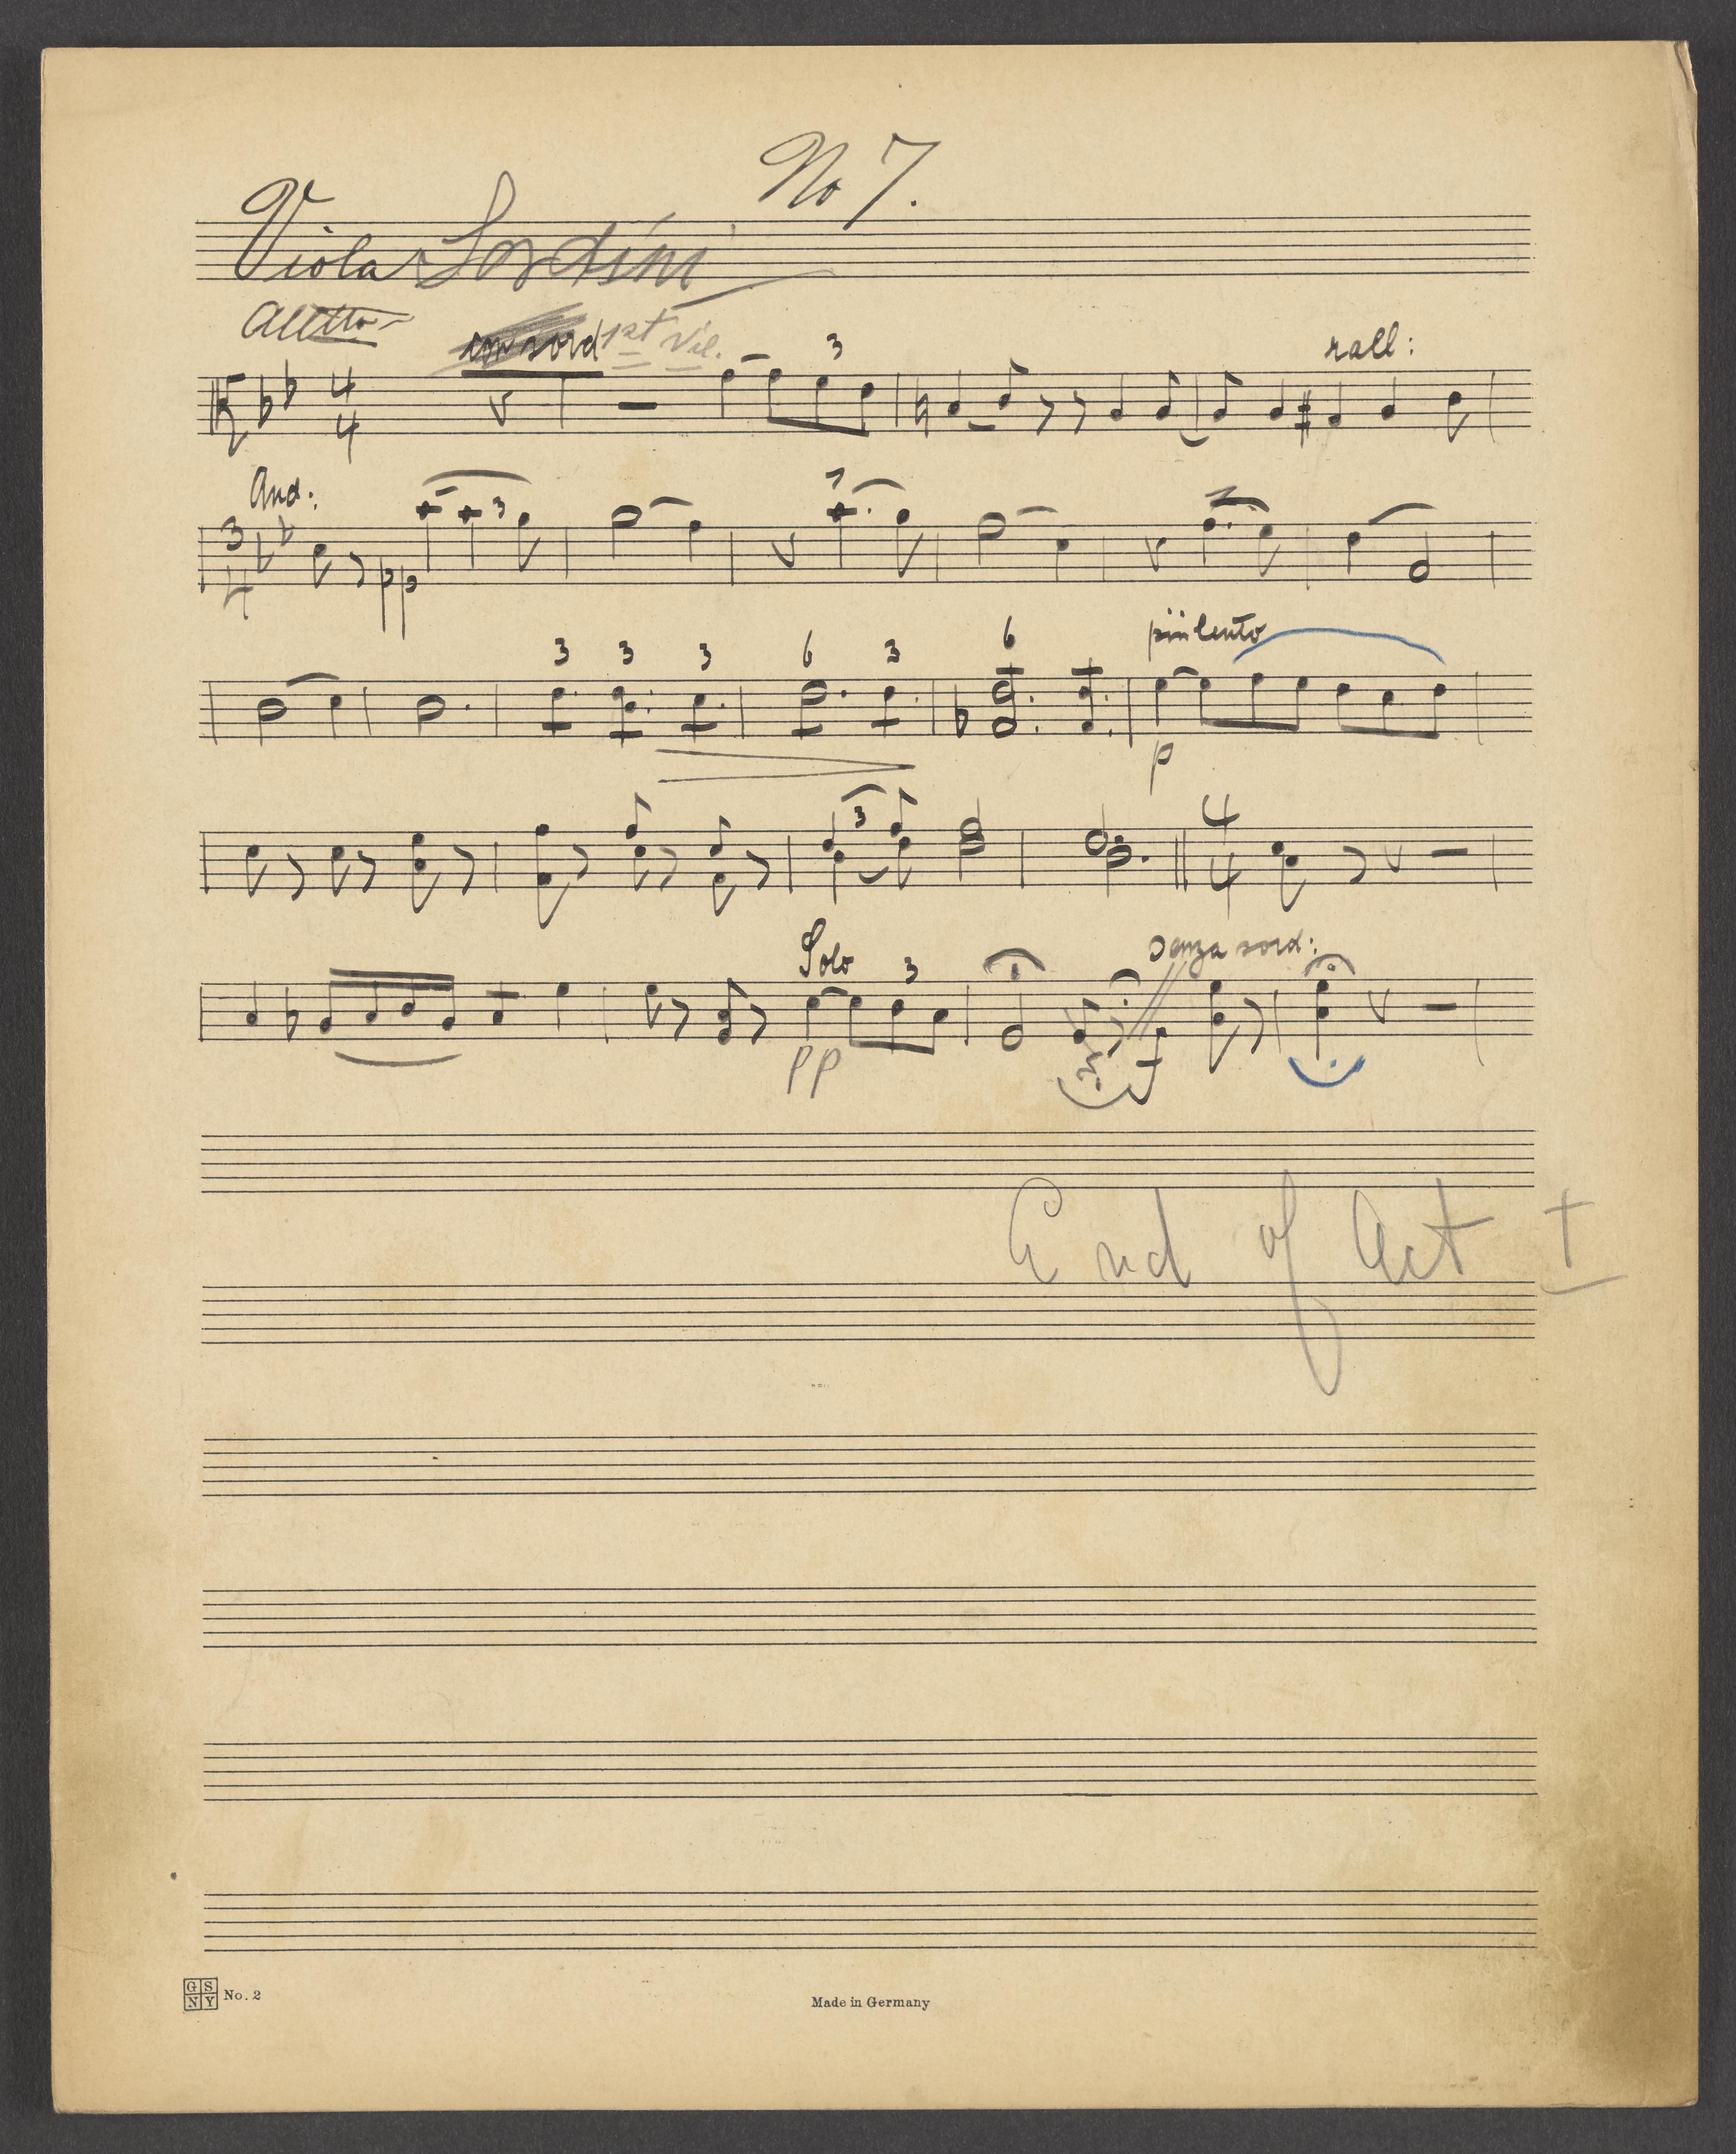 No 7.
Viola Sordini
Alltto
con sord 1st Vil.
3 rall:
4
4
And:
3
4
3
pp
3 3 3 6 3 6 più lento
p
3
4
4
Solo 3 senza sord:
pp f
End of Act I
GSNY No. 2 Made in Germany